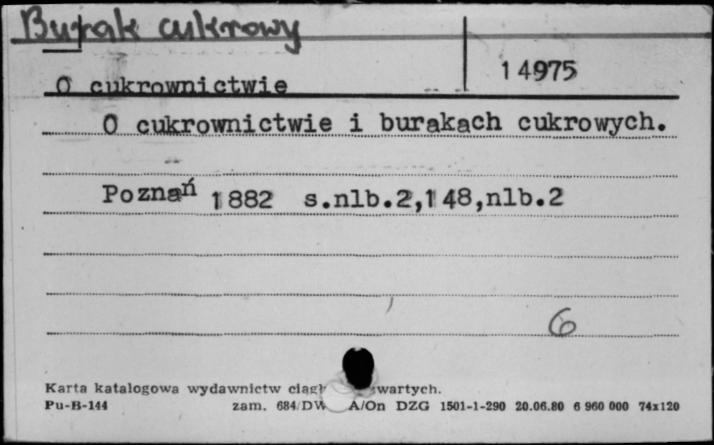 Burak cukrowy
14975
O cukrownictwie
O cukrownictwie i burakach cukrowych.
Poznań 1882 s.nlb.2,148,nlb.2
6
Karta katalogowa wydawnictw ciągł wartych.
Pu-B-144 zam. 684/DW A/On DZG 1501-1-290 20.06.80 6 960 000 74x120